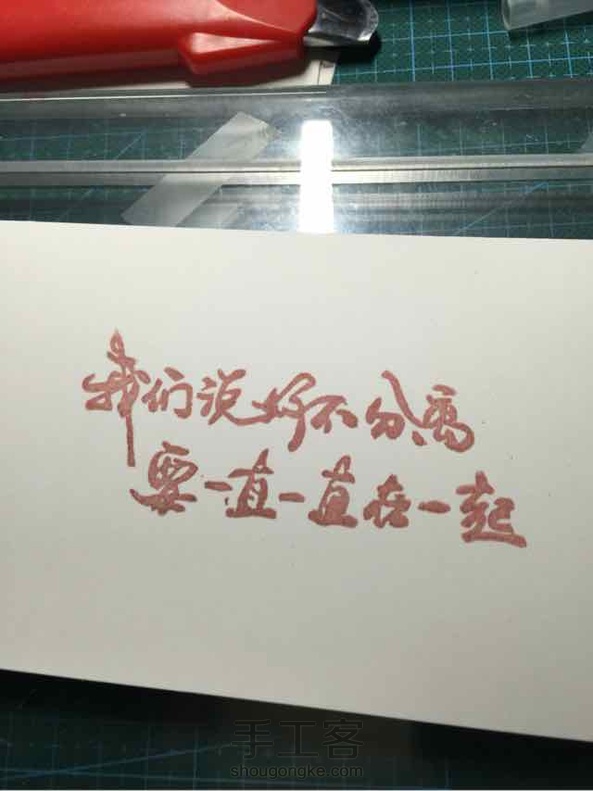 我们说好不分离
要一直一直在一起
手工客
shougongke.com